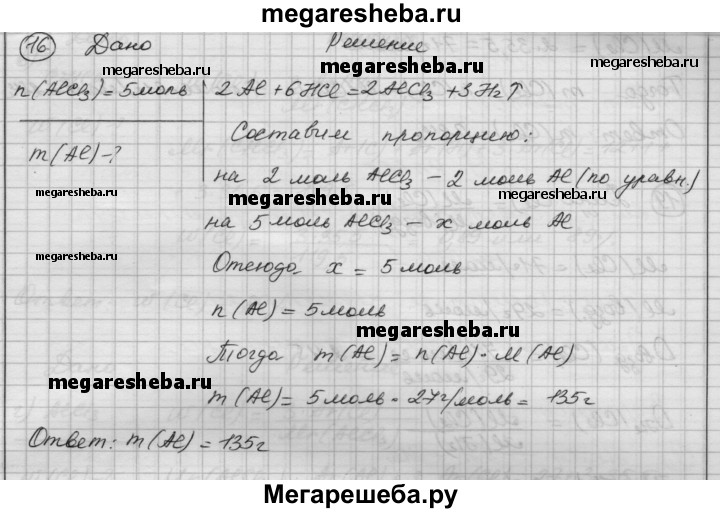 megaresheba.ru
16 Дано Решение
megaresheba.ru megaresheba.ru megaresheba.ru
n(AlCl3)=5моль 2Al+6HCl=2AlCl3+3H2↑
Составим пропорцию:
m(Al)-?
на 2 моль AlCl3 – 2 моль Al(по уравн.)
megaresheba.ru megaresheba.ru megaresheba.ru
на 5моль AlCl3 – x моль Al
megaresheba.ru
Отсюда x = 5моль
n(Al)=5моль
megaresheba.ru
Тогда m(Al)=n(Al)·M(Al)
megaresheba.ru
m(Al)= 5моль·27г/моль= 135г
Ответ: m(Al)=135г
Мегарешеба.ру